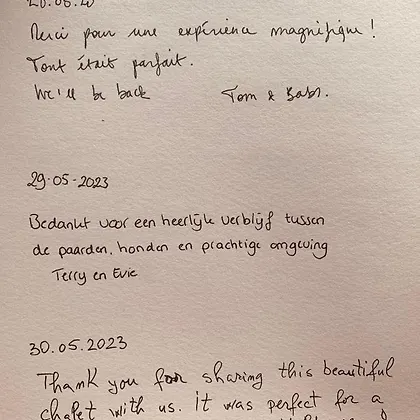 Merci pour une expérience magnifique !
Tout était parfait.
We'll be back Tom & Babs.
29-05-2023
Bedankt voor een heerlijk verblijf tussen
de paarden, honden en prachtige omgeving
Terry en Evie
30.05.2023
Thank you for sharing this beautiful
chalet with us. It was perfect for a